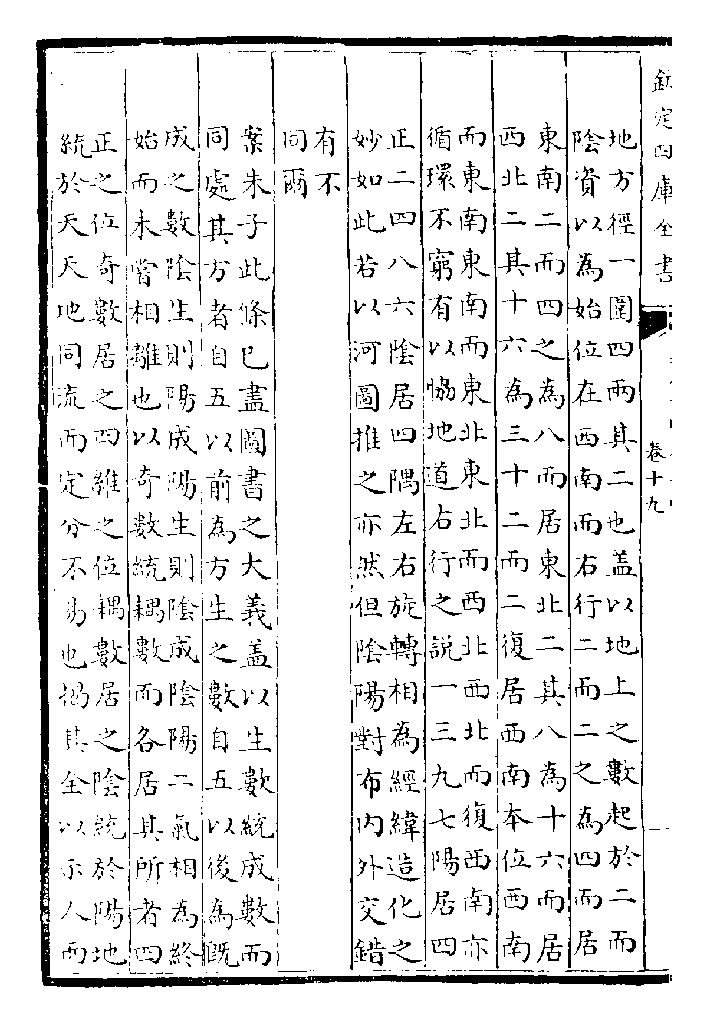 欽定四庫全書
卷十九
地方徑一圍四兩其二也盖以地上之數起於二而
陰資以為始位在西南而右行二而二之為四而居
東南二而四之為八而居東北二其八為十六而居
西北二其十六為三十二而二復居西南本位西南
而東南東南而東北東北而西北西北而復西南亦
循環不窮有以恊地道右行之説一三九七陽居四
正二四八六陰居四隅左右旋轉相為經緯造化之
妙如此若以河圖推之亦然但陰陽對布内外交錯
有不
同爾
案朱子此條已盡圖書之大義盖以生數統成數而
同處其方者自五以前為方生之數自五以後為既
成之數陰生則陽成陽生則陰成陰陽二氣相為終
始而未嘗相離也以奇數統耦數而各居其所者四
正之位奇數居之四維之位耦數居之陰統於陽地
統於天天地同流而定分不易也揭其全以示人而